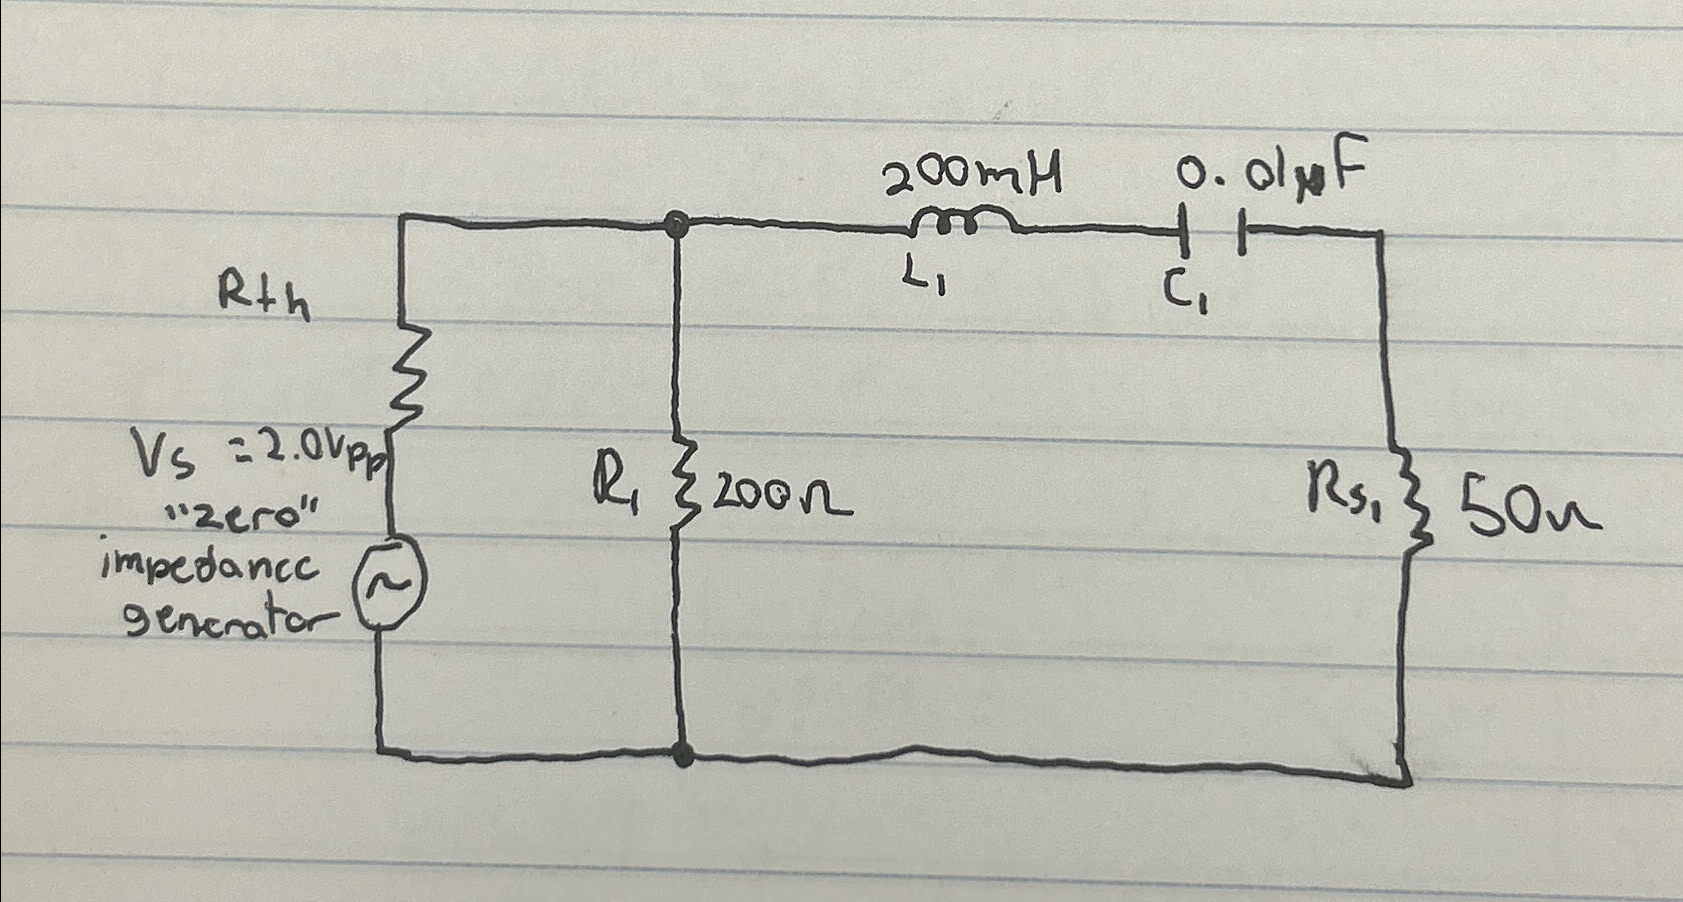 200mH
0.01μF
L1
C1
Rth
Vs = 2.0Vpp
"zero"
impedance
generator
R1
200Ω
Rs1
50Ω